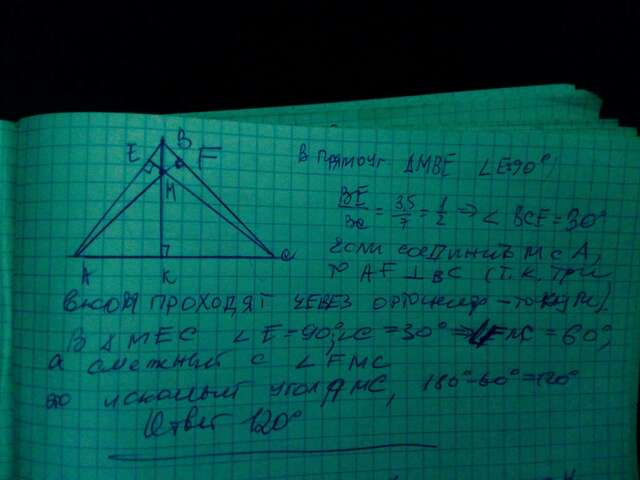 B
E
F
M
A
K
C
В прямоуг ΔMBE ∠E=90°
BE/BC = 3,5/7 = 1/2 ⇒ ∠BCE=30°
если соединить M с A,
то AF ⊥ BC (т.к. три
высоты проходят через ортоцентр – точку M).
В Δ MFC ∠F=90°, ∠C=30° ⇒ ∠FMC=60°,
а смежный с ∠FMC
это искомый угол AMC, 180°-60°=120°
Ответ 120°